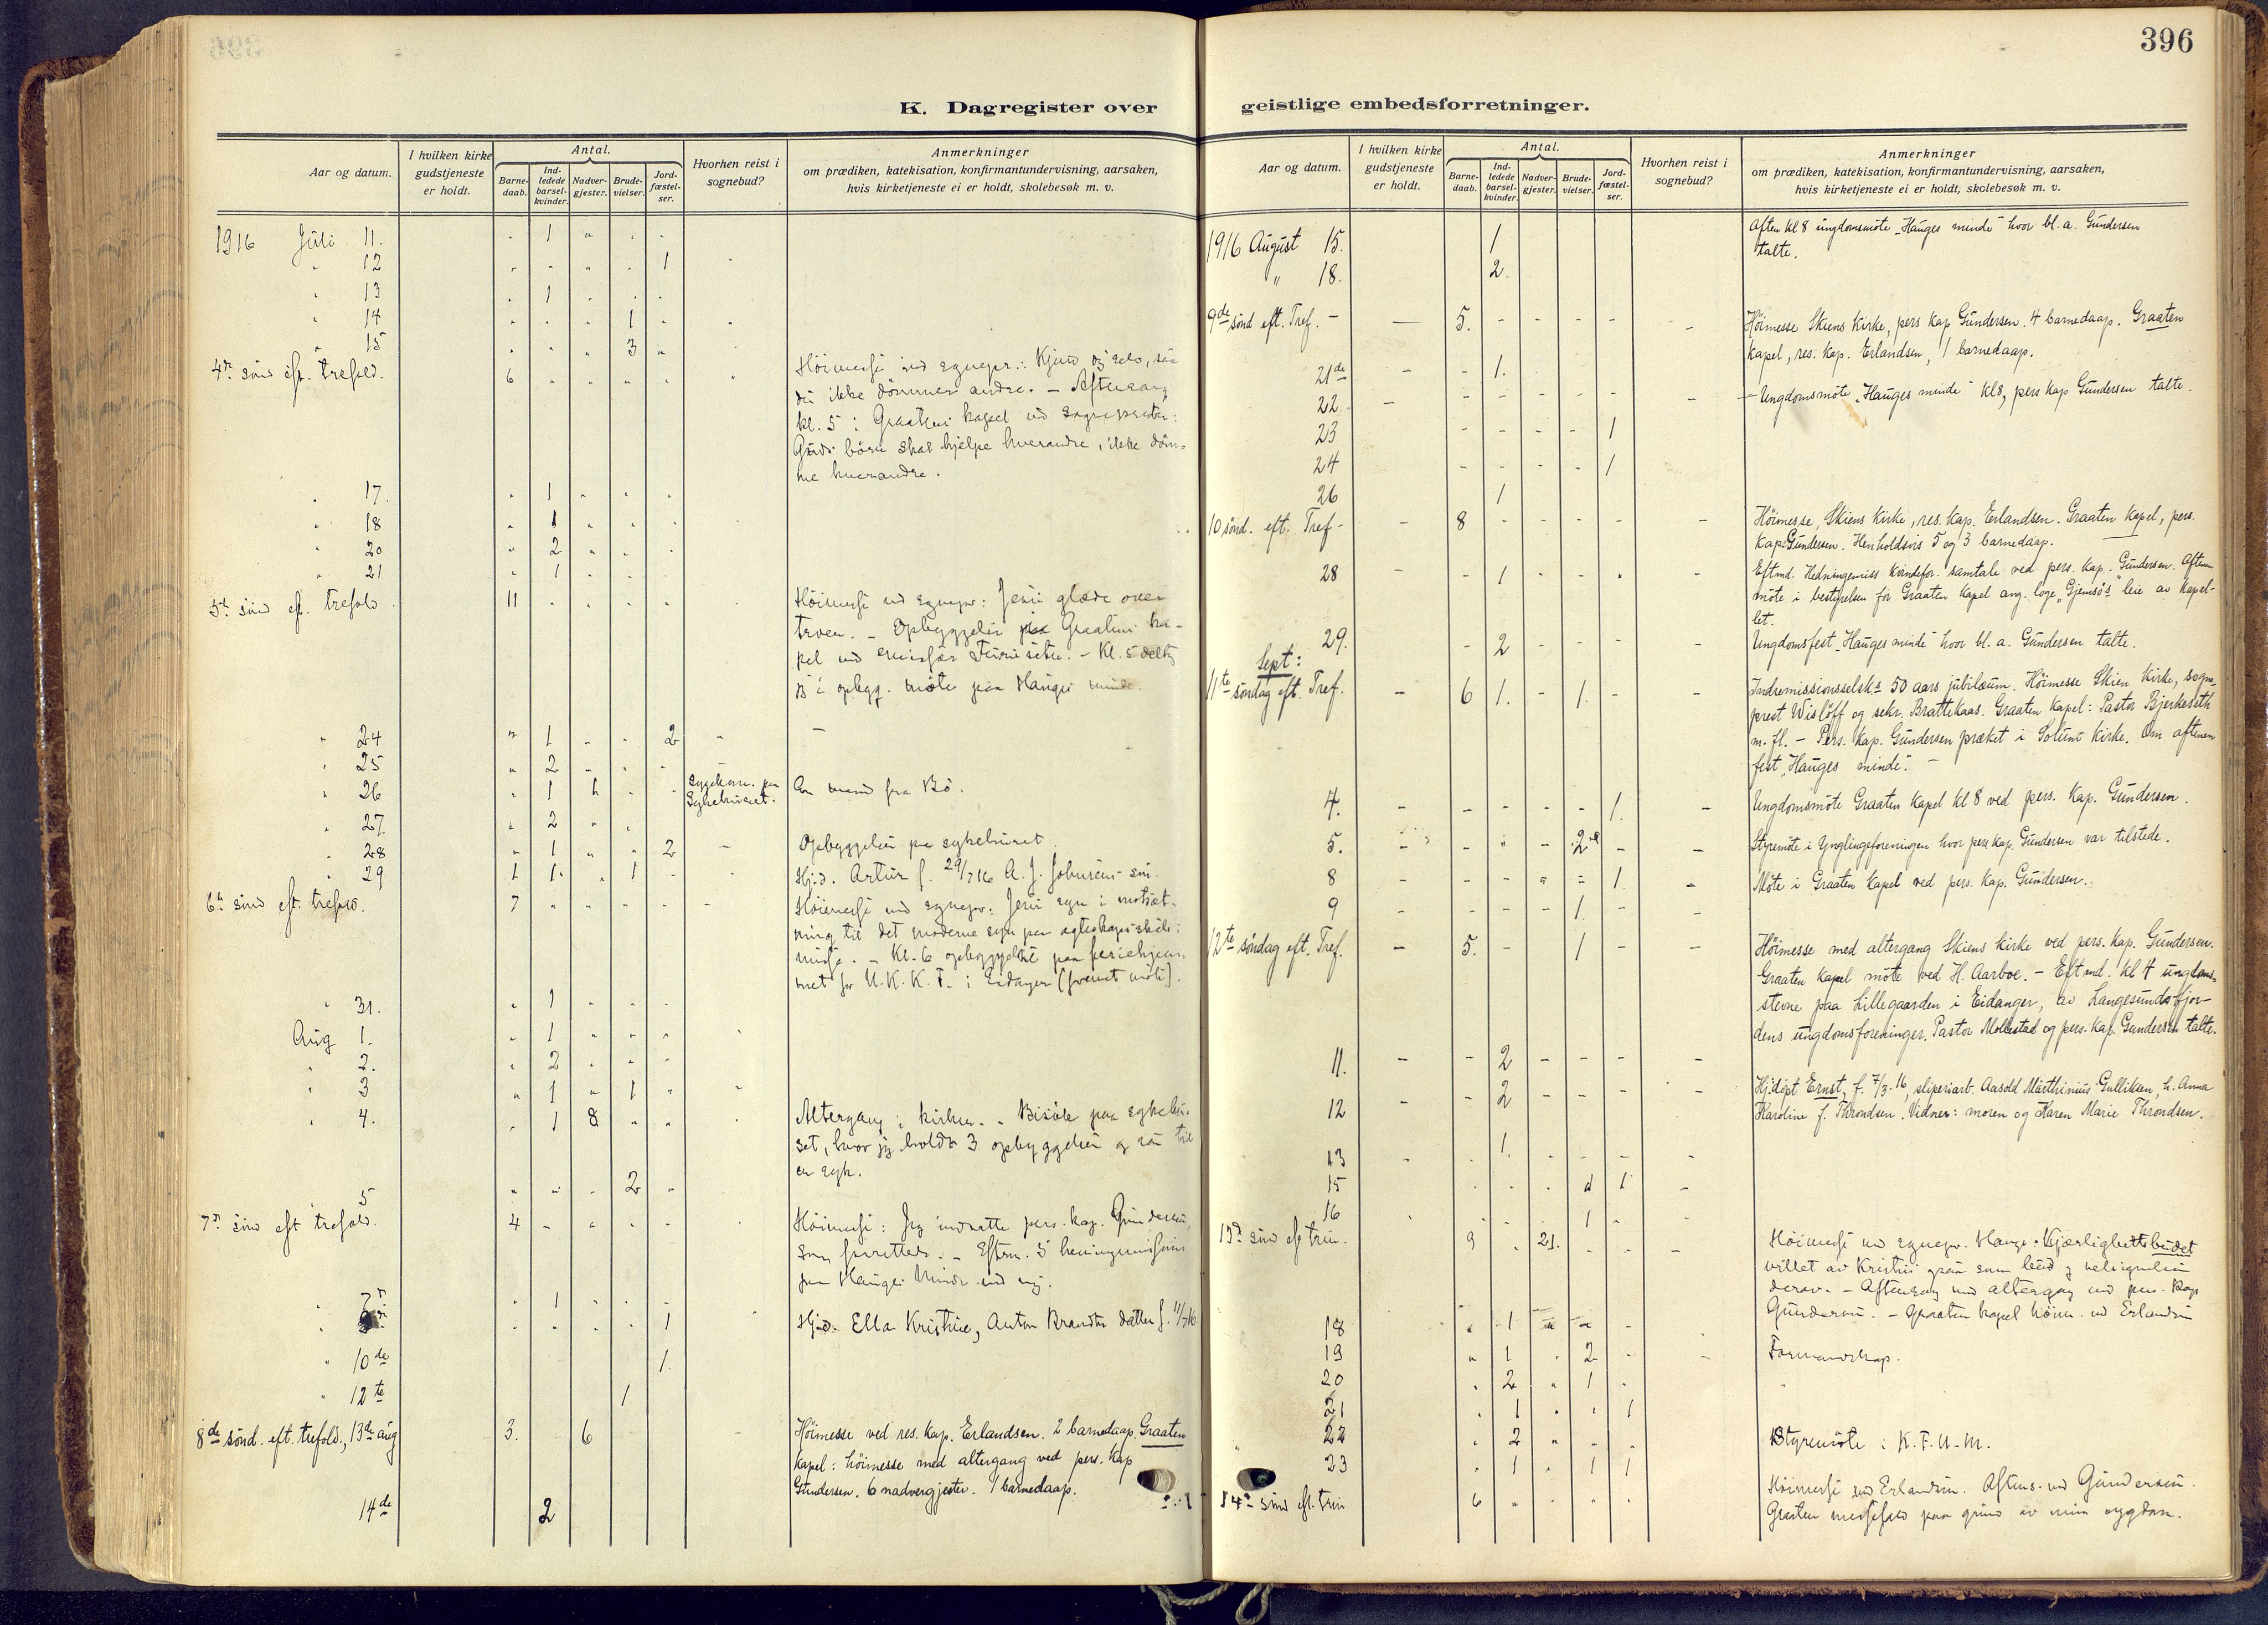 396
K. Dagregister over
geistlige embedsforretninger.
Aar og datum.
I hvilken kirke gudstjeneste er holdt.
Antal.
Barnedaab.
Indledede barselkvinder.
Nadvergjester.
Brudevielser.
Jordfæstelser.
Hvorhen reist i sognebud?
Anmerkninger
om prædiken, katekisation, konfirmantundervisning, aarsaken,
hvis kirketjeneste ei er holdt, skolebesøk m. v.
1916 Juli 11. 1
12 1
13 1
14 1
15 3
4de sønd eft. trefold. 6 Høimesse ved sognepr.: Kjend dig selv, saa
du ikke dømmer andre. – Aftensang
kl. 5 i Graaten kapel ved sognepresten:
Guds børn skal hjelpe hverandre, ikke døm-
me hverandre.
17. 1
18 1
20 2
21 1
5te sønd eft. trefold. 11 Høimesse ved sognepr: Jesu glæde over
troen. – Opbyggelse Graaten ka-
pel ved – Kl. 5 deltog
jeg i opbygg. møte paa Hauges minde.
24 1 2
25 2
26 1 1 Sygekom. paa Sykehuset. En mand fra Bø.
27. 2
28 1 2 Opbyggelse paa sykehuset.
29 1 1 1 Hj.d. Artur f. 29/7 16 A. J. Johnsens søn.
6te sønd eft. trefold. 7 Høimesse ved sognepr: Jesu syn i motsæt-
ning til det moderne syn paa egteskapsskils-
misse. – Kl. 6 opbyggelse paa feriehjem-
met for U.K.K.F. i Eidanger
31. 1
Aug 1. 1
2. 2
3 1 1
4. 1 8 Altergang i kirken. – Besøk paa sykehu-
set, hvor jeg holdt 3 opbyggelser og saa til
en syk.
5 2
7de sønd eft trefold. 4 Høimesse: Jeg indsatte pers. kap. Gundersen,
som forrettet. – Efterm. 5 hedningemission
paa Hauges Minde ved mig.
7de 1
1 Hj.d. Ella Kristine, Anton Brandts datter f. 11/7 16.
10de 1.
12te 1
8de sønd. eft. trefold., 13de aug 3. 6 Høimesse ved res. kap. Erlandsen. 2 barnedaap. Graaten
kapel: høimesse med altergang ved pers. kap
Gundersen. 6 nadvergjester. 1 barnedaap.
14de 2
Aar og datum.
I hvilken kirke gudstjeneste er holdt.
Antal.
Barnedaab.
Indledede barselkvinder.
Nadvergjester.
Brudevielser.
Jordfæstelser.
Hvorhen reist i sognebud?
Anmerkninger
om prædiken, katekisation, konfirmantundervisning, aarsaken,
hvis kirketjeneste ei er holdt, skolebesøk m. v.
1916 August 15. 1 Aften kl 8 ungdomsmøte „Hauges minde" hvor bl. a. Gundersen
talte.
" 18. 2.
9de sønd eft. Tref. – 5. Høimesse Skiens Kirke, pers kap Gundersen. 4 barnedaap. Graaten
kapel, res. kap. Erlandsen, 1 barnedaap.
21de 1.
22. – Ungdomsmøte „Hauges minde" kl 8, pers kap Gundersen talte.
23 1
24 1
26 1
10 sønd. eft. Tref – 8 Høimesse, Skiens Kirke, res. kap. Erlandsen. Graaten kapel, pers.
kap. Gundersen. Henholdsvis 5 og 3 barnedaap.
28 1 Eftmd. Hedningemiss kvindefor. samtale ved pers. kap. Gundersen. Aftenen
møte i bestyrelsen for Graaten kapel ang. loge „Gjemsø's" leie av kapel-
let.
29. 2 Ungdomsfest „Hauges minde" hvor bl. a. Gundersen talte.
Sept:
11te søndag eft. Tref. 6 1. 1. Indremissionsselsk.s 50 aars jubilæum. Høimesse Skien Kirke, sogne-
prest Wisløff og sekr. Brattekaas. Graaten kapel: Pastor Bjerkeseth
m. fl. – Pers. kap. Gundersen præket i Solum kirke. Om aftenen
fest „Hauges minde". –
4. 1. Ungdomsmøte Graaten kapel kl 8 ved pers. kap. Gundersen.
5. 2 Styremøte i Ynglingeforeningen hvor pers kap. Gundersen var tilstede.
8 1. Møte i Graaten kapel ved pers. kap. Gundersen.
9 1.
12te søndag eft. Tref. 5. 1 Høimesse med altergang Skiens kirke ved pers. kap. Gundersen.
Graaten kapel møte ved H. Aarboe. – Eftmd. kl 4 ungdoms-
stevne paa Lillegaarden i Eidanger, av Langesundsfjor-
dens ungdomsforeninger. Pastor Mollestad og pers. kap. Gundersen talte.
11. 2
12 2 Hj.døpt Ernst, f. 7/3 16, sliperiarb. Aasold Marthinius Gulliksen, h. Anna
Karoline f. Throndsen. Vidner: moren og Karen Marie Throndsen.
13 1.
15 1 1
16 1
13de sønd eft trin. 9 21. Høimesse ved sognepr. Hauge: Kjærlighetsbudet
av Kristus som bud og velsignelsen
derav. – Aftensang med altergang ved pers. kap
Gundersen. – Graaten kapel høim. ved Erlandsen
18 1
19 1 2 Formandskap.
20 2 1
21 1 1
22 2 Styremøte i K.F.U.M.
23 1 1 1
14de sønd eft. trin 6 Høimesse ved Erlandsen. Aftens. ved Gundersen.
Graaten messefald paa grund av min sygdom.